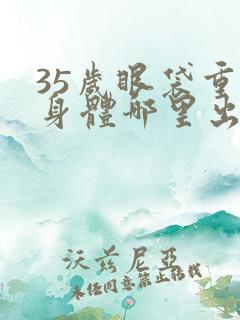 35歲眼袋重
身體哪里出
沃兹尼亞
未经同意禁止转载